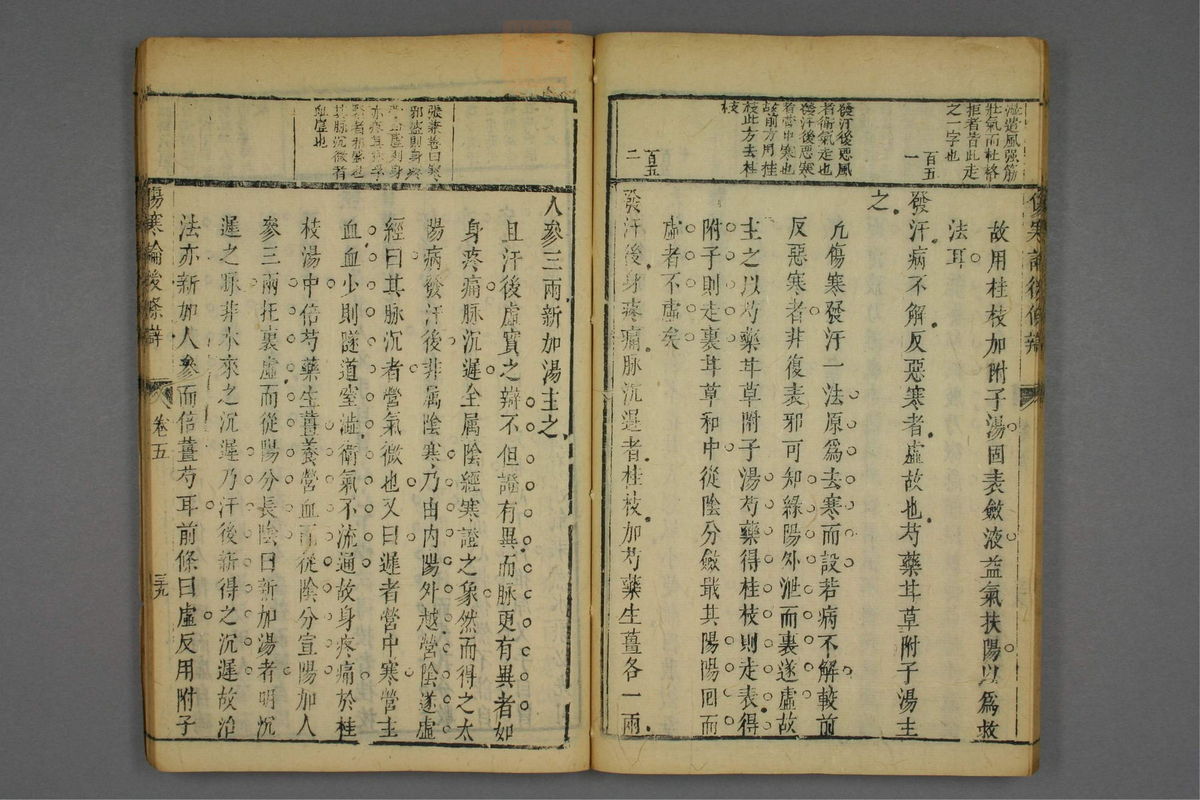 故用桂枝加附子湯固表斂液益氣扶陽以爲救
法耳
發汗病不解反惡寒者虛故也芍藥甘草附子湯主
之
凡傷寒發汗一法原爲去寒而設若病不解較前
反惡寒者非復表邪可知緣陽外泄而裏遂虛故
主之以芍藥甘草附子湯芍藥得桂枝則走表得
附子則走裏甘草和中從陰分斂戢其陽陽囘而
虛者不虛矣
發汗後身疼痛脉沉遲者桂枝加芍藥生薑各一兩
壯氣而杜格
拒者皆此走
之一字也
百五
一
發汗後惡風
者衛氣走也
發汗後惡寒
者營中寒也
故前方用桂
枝此方去桂
枝
百五
二
人參三兩新加湯主之
且汗後虛實之辯不但證有異而脉更有異者如
身疼痛脉沉遲全属陰經寒證之象然而得之太
陽病發汗後非属陰寒乃由内陽外越營陰遂虛
經曰其脉沉者營氣微也又曰遲者營中寒營主
血血少則隧道窒澁衛氣不流通故身疼痛於桂
枝湯中倍芍藥生薑養營血而從陰分宣陽加人
參三兩托裏虛而從陽分長陰曰新加湯者明沉
遲之脉非本來之沉遲乃汗後新得之沉遲故治
法亦新加人參而倍薑芍耳前條曰虛反用附子
張兼善曰寒
邪盛則身疼
營血虛則身
亦疼其脉浮
緊者邪盛也
其脉沉微者
血虛也
傷寒論後條辯
卷五
三九